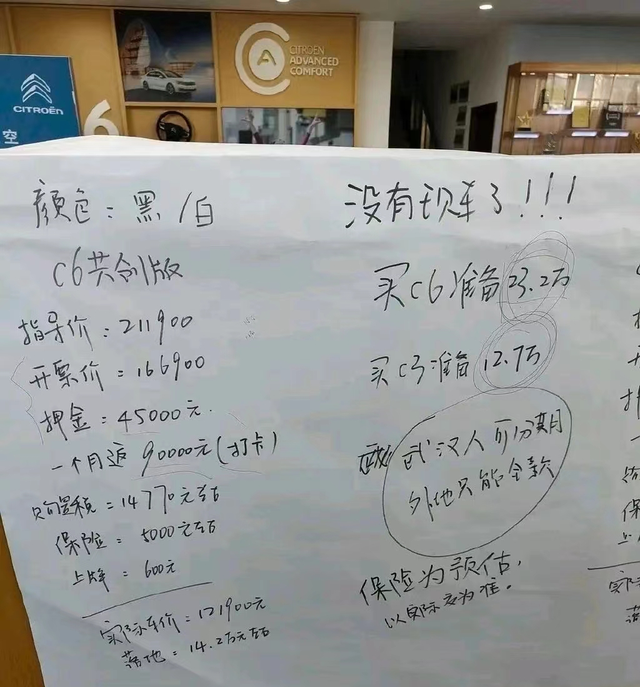 CITROËN
空
6
CITROËN
ADVANCED
COMFORT
颜色：黑/白
C6共创版
指导价：211900
开票价：166900
押金：45000元
一个月返90000元(打卡)
购置税=14770元左右
保险=5000元左右
上牌=600元
实际车价=121900元
落地=14.2万元左右
没有现车了!!!
买C6准备23.2万
买C3准备12.7万
武汉人可分期
外地只能全款
保险为预估，
以实际为准。